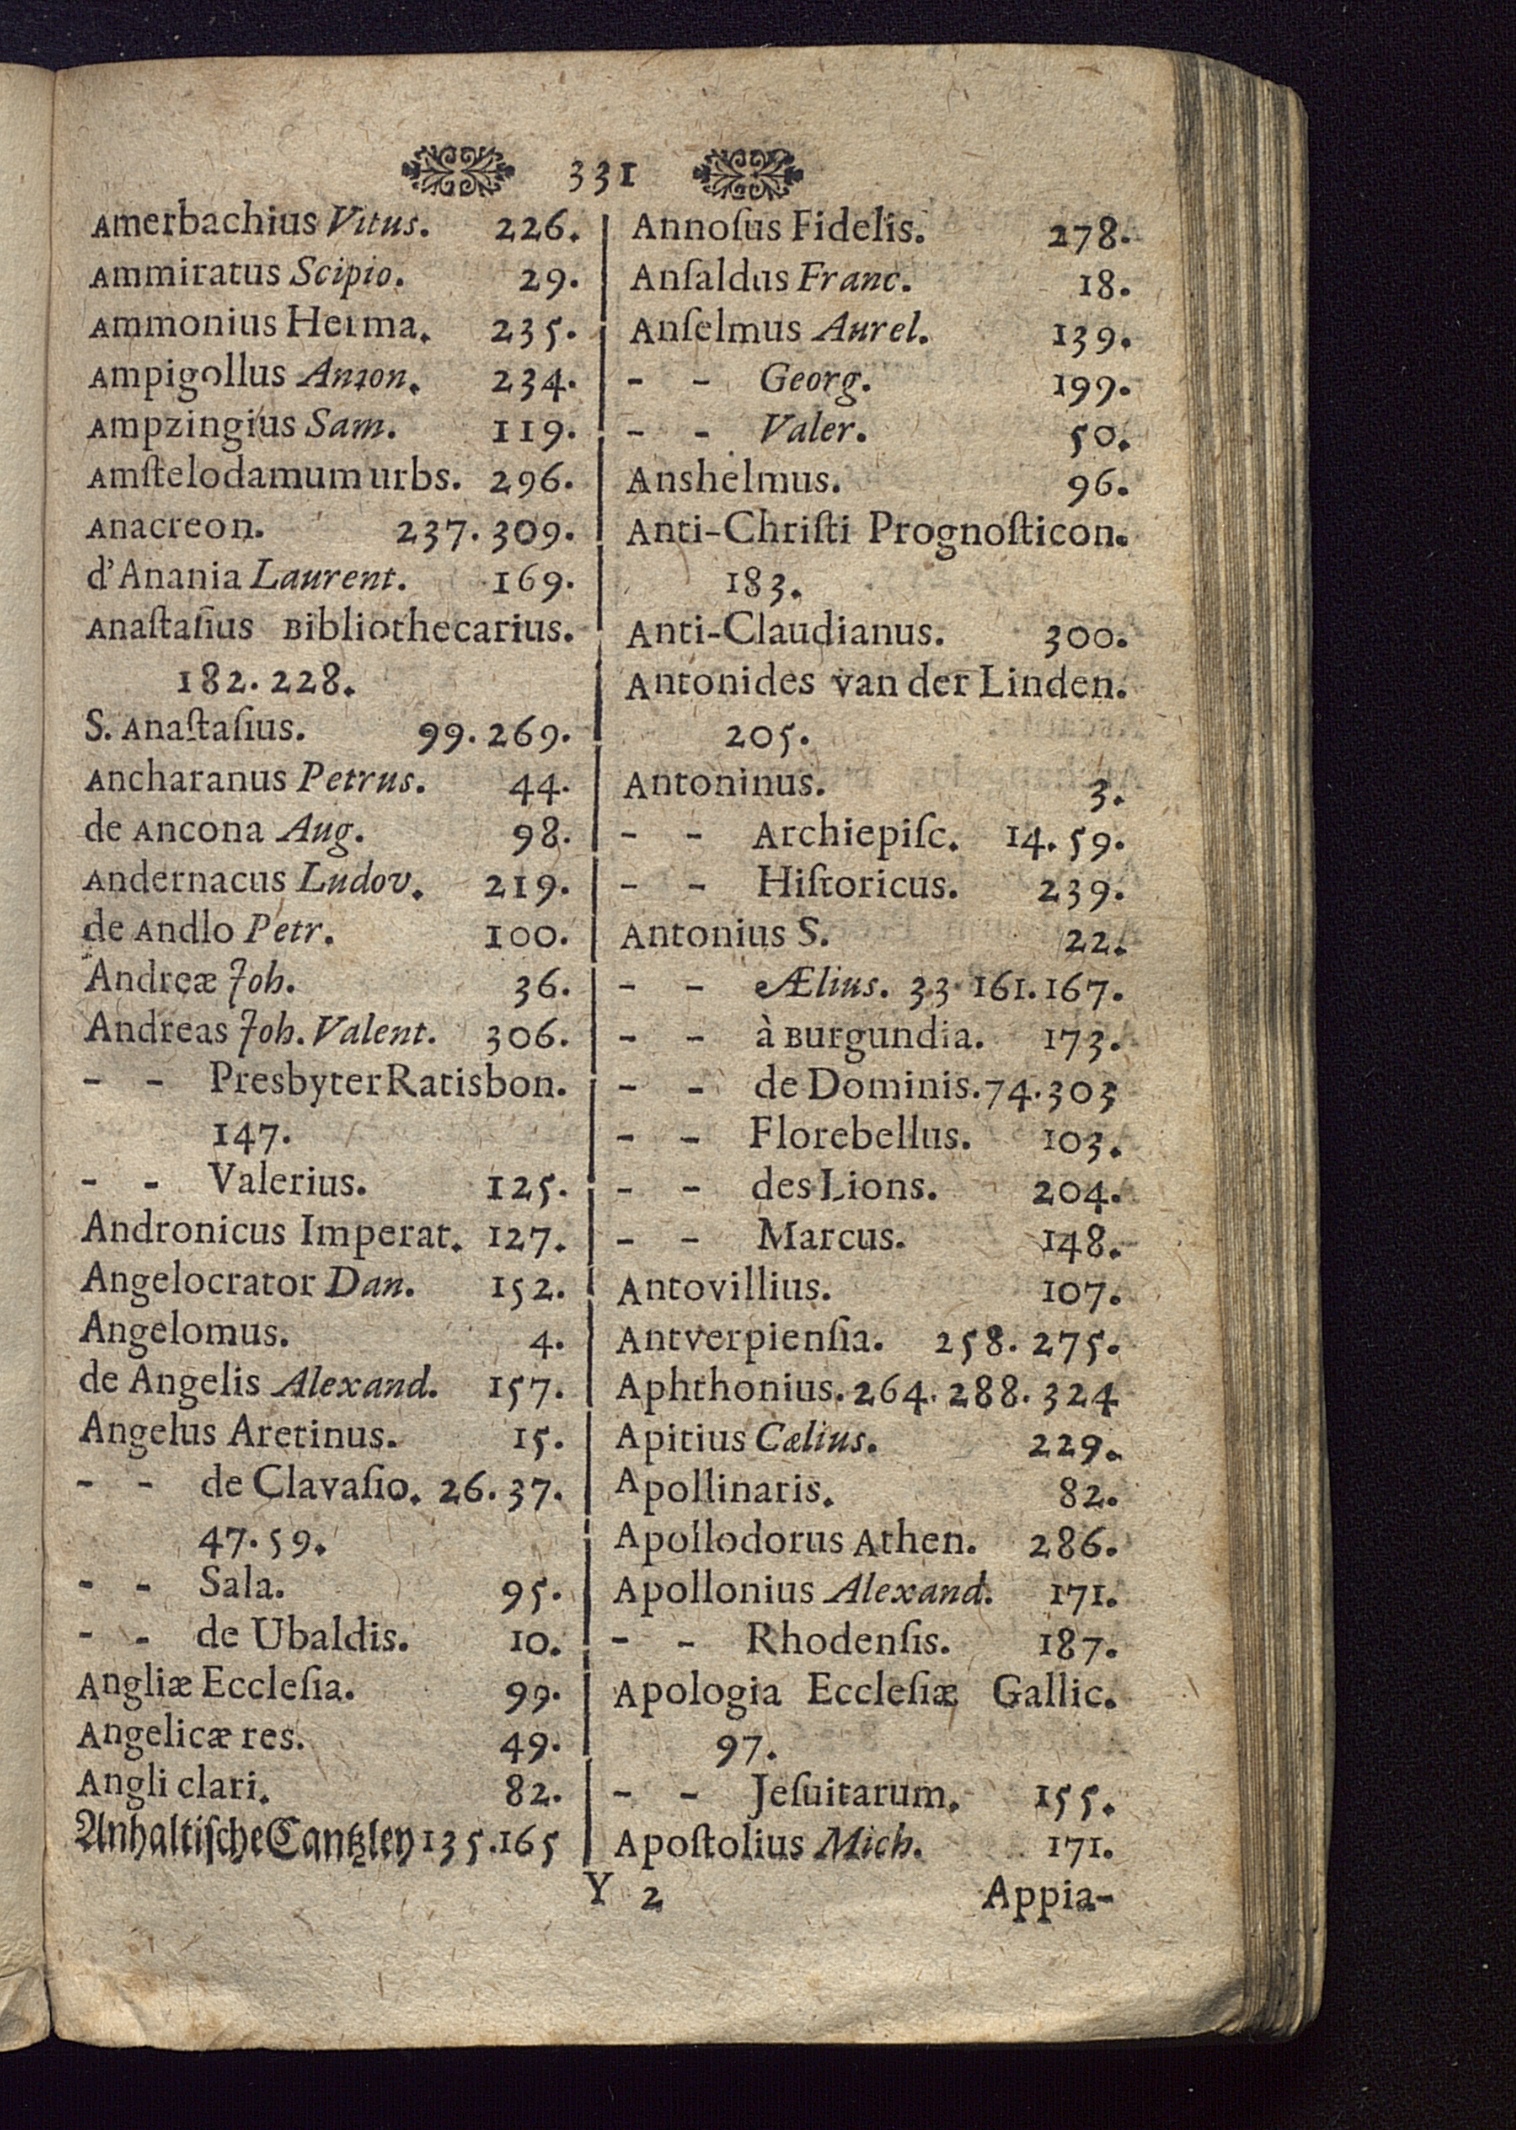 331
Amerbachius Vitus. 226.
Ammiratus Scipio. 29.
Ammonius Herma. 235.
Ampigollus Anton. 234.
Ampzingius Sam. 119.
Amſtelodamum urbs. 296.
Anacreon. 237. 309.
d'Anania Laurent. 169.
Anaſtaſius Bibliothecarius.
182. 228.
S. Anaſtaſius. 99. 269.
Ancharanus Petrus. 44.
de Ancona Aug. 98.
Andernacus Ludov. 219.
de Andlo Petr. 100.
Andreæ Joh. 36.
Andreas Joh. Valent. 306.
- - Presbyter Ratisbon.
147.
- - Valerius. 125.
Andronicus Imperat. 127.
Angelocrator Dan. 152.
Angelomus. 4.
de Angelis Alexand. 157.
Angelus Aretinus. 15.
- - de Clavaſio. 26. 37.
47. 59.
- - Sala. 95.
- - de Ubaldis. 10.
Angliæ Eccleſia. 99.
Angelicæ res. 49.
Angli clari. 82.
Anhaltiſche Cantzley 135. 165
Annoſus Fidelis. 278.
Anſaldus Franc. 18.
Anſelmus Aurel. 139.
- - Georg. 199.
- - Valer. 50.
Anshelmus. 96.
Anti-Chriſti Prognoſticon.
183.
Anti-Claudianus. 300.
Antonides van der Linden.
205.
Antoninus. 3.
- - Archiepiſc. 14. 59.
- - Hiſtoricus. 239.
Antonius S. 22.
- - Ælius. 33. 161. 167.
- - à Burgundia. 173.
- - de Dominis. 74. 303
- - Florebellus. 103.
- - des Lions. 204.
- - Marcus. 148.
Antovillius. 107.
Antverpienſia. 258. 275.
Aphthonius. 264. 288. 324
Apitius Cælius. 229.
Apollinaris. 82.
Apollodorus Athen. 286.
Apollonius Alexand. 171.
- - Rhodenſis. 187.
Apologia Eccleſiæ Gallic.
97.
- - Jeſuitarum. 155.
Apoſtolius Mich. 171.
Y 2 Appia-